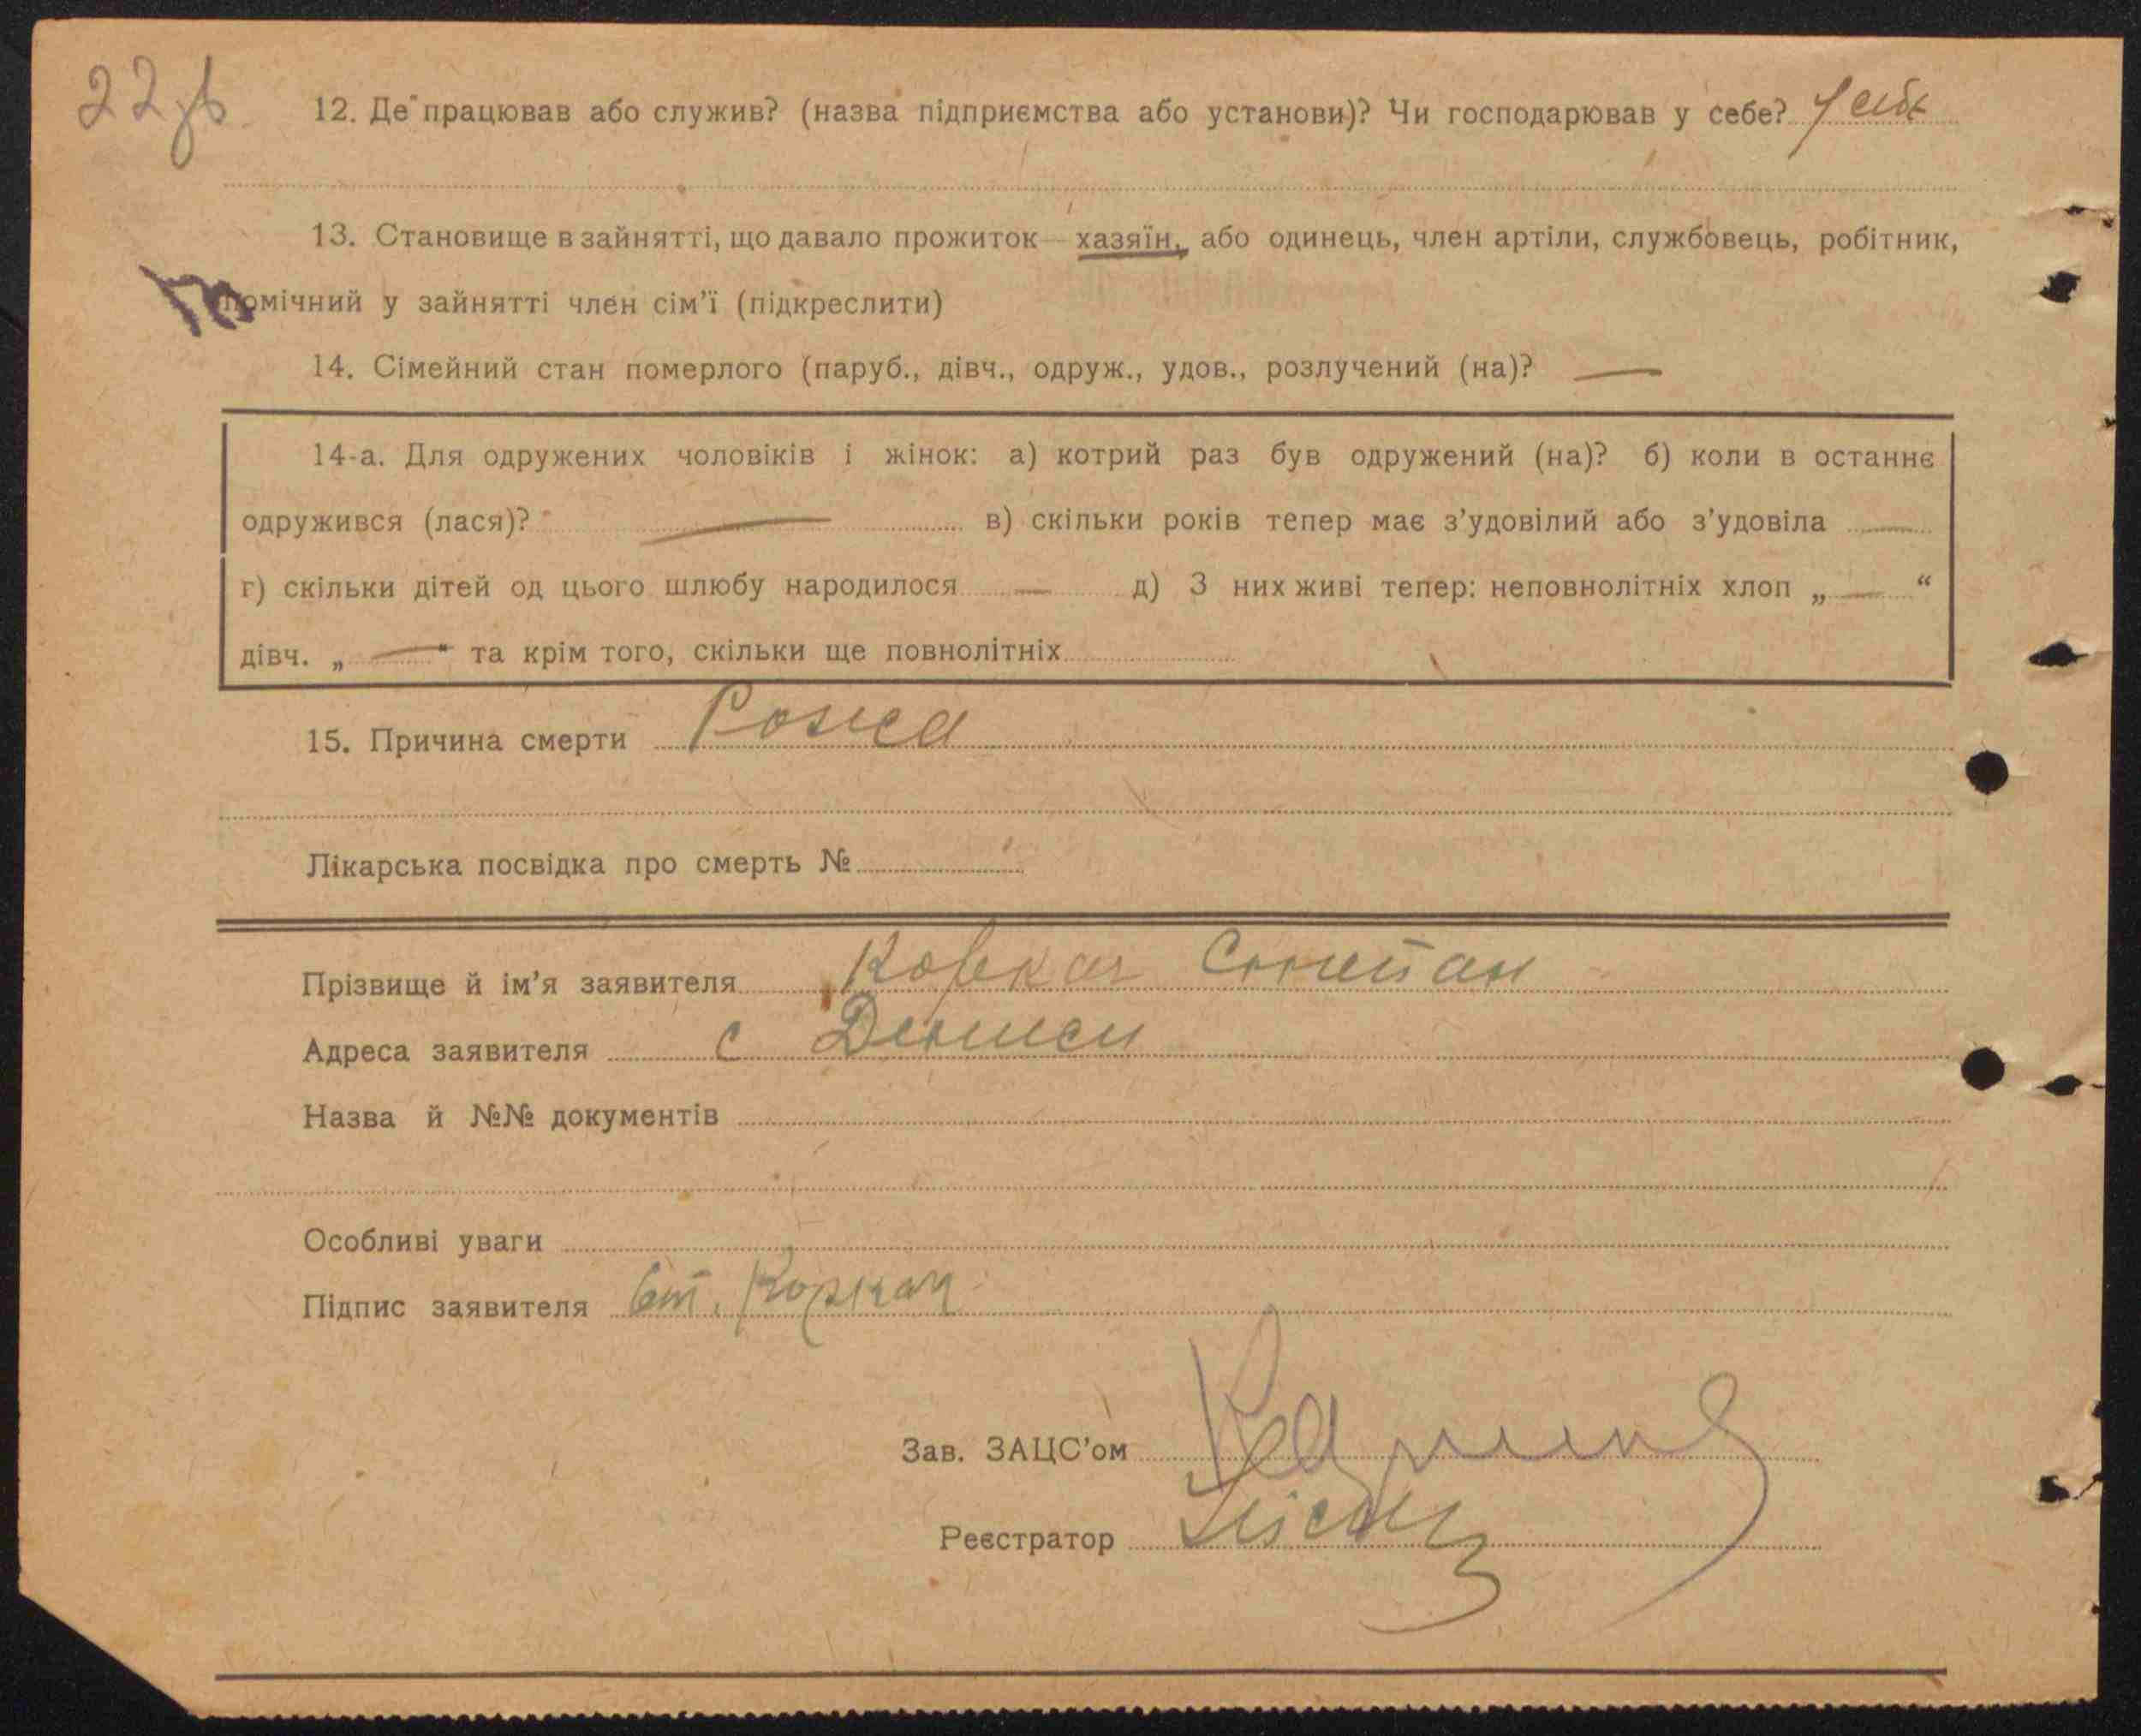 22зв
12. Де працював або служив? (назва підприємства або установи)? Чи господарював у себе? У себе
13. Становище в зайнятті, що давало прожиток — хазяїн, або одинець, член артіли, службовець, робітник,
помічний у зайнятті член сім’ї (підкреслити)
14. Сімейний стан померлого (паруб., дівч., одруж., удов., розлучений (на)? —
14-а. Для одружених чоловіків і жінок: а) котрий раз був одружений (на)? б) коли в останнє
одружився (лася)? — в) скільки років тепер має з’удовілий або з’удовіла —
г) скільки дітей од цього шлюбу народилося — д) З них живі тепер: неповнолітніх хлоп „ — “
дівч. „ — “ та крім того, скільки ще повнолітніх
15. Причина смерти Рожа
Лікарська посвідка про смерть №
Прізвище й ім’я заявителя Коркач Степан
Адреса заявителя с Дениси
Назва й №№ документів
Особливі уваги
Підпис заявителя Ст. Коркач
Зав. ЗАЦС’ом
Реєстратор